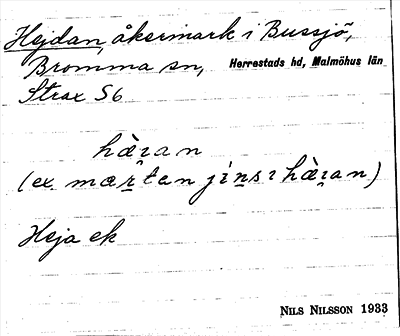 Hejdan, åkermark i Bussjö,
Bromma sn, Herrestads hd, Malmöhus län
Strax S6
hὰi̯an
(ex mæṉtan jiṉs ı hὰi̯an)
Heja ek
NILS NILSSON 1933